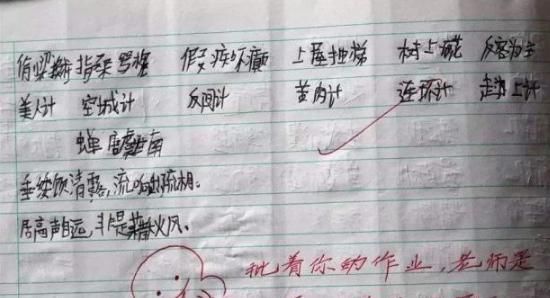 指桑骂槐 假 癫 上屋抽梯 树上 反客为主
美人计 空城计 反间计 苦肉计 连环计 走为上计
蝉 虞世南
垂緌饮清露,流响出疏桐。
居高声自远,非是藉秋风。
批着你的作业,老师是